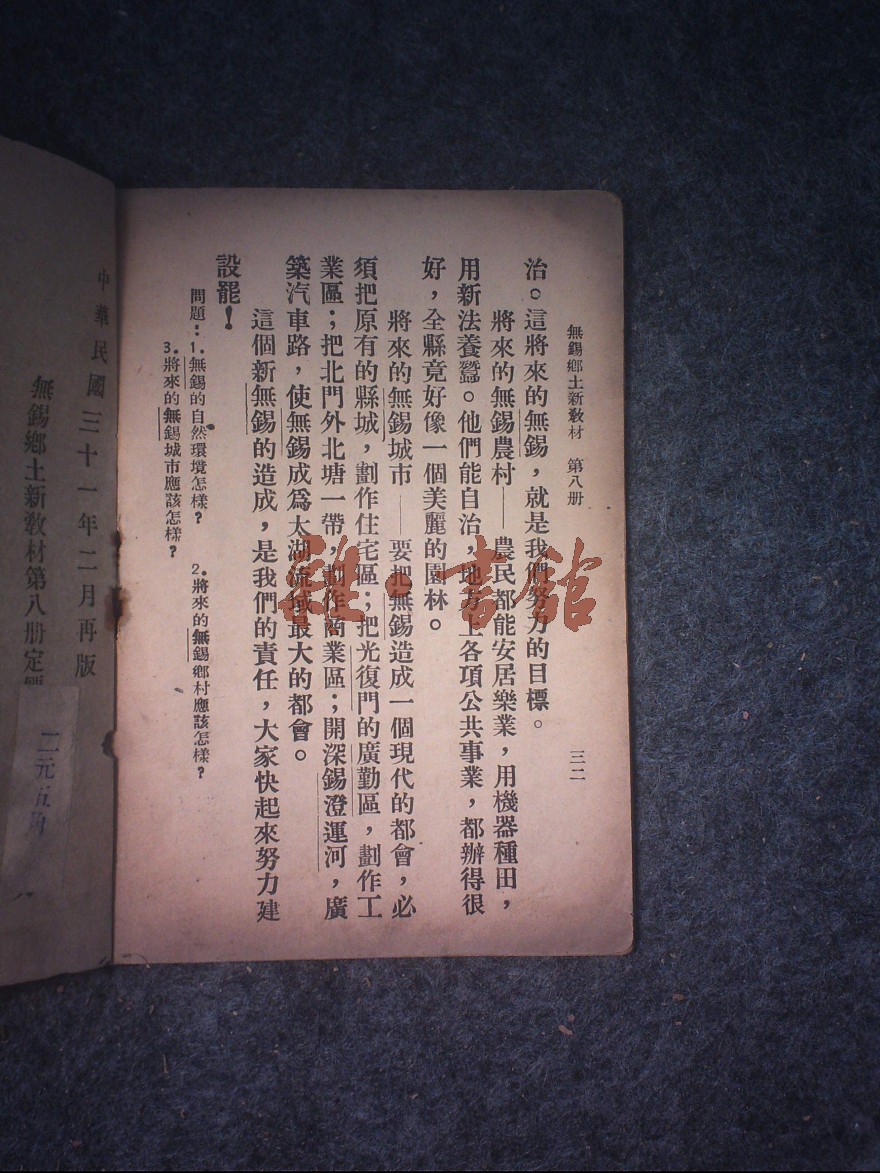 無錫鄉土新教材　第八册
三二
治。這將來的無錫，就是我們努力的目標。
將來的無錫農村——農民都能安居樂業，用機器種田，
用新法養蠶。他們能自治，地方上各項公共事業，都辦得很
好，全縣竟好像一個美麗的園林。
將來的無錫城市——要把無錫造成一個現代的都會，必
須把原有的縣城，劃作住宅區；把光復門的廣勤區，劃作工
業區；把北門外北塘一帶，劃作商業區；開深錫澄運河，廣
築汽車路，使無錫成爲太湖流域最大的都會。
這個新無錫的造成，是我們的責任，大家快起來努力建
設罷！
問題：1.無錫的自然環境怎樣？　2.將來的無錫鄉村應該怎樣？
3.將來的無錫城市應該怎樣？
中華民國三十一年二月再版
無錫鄉土新教材第八册定
二元五角
雜·書館